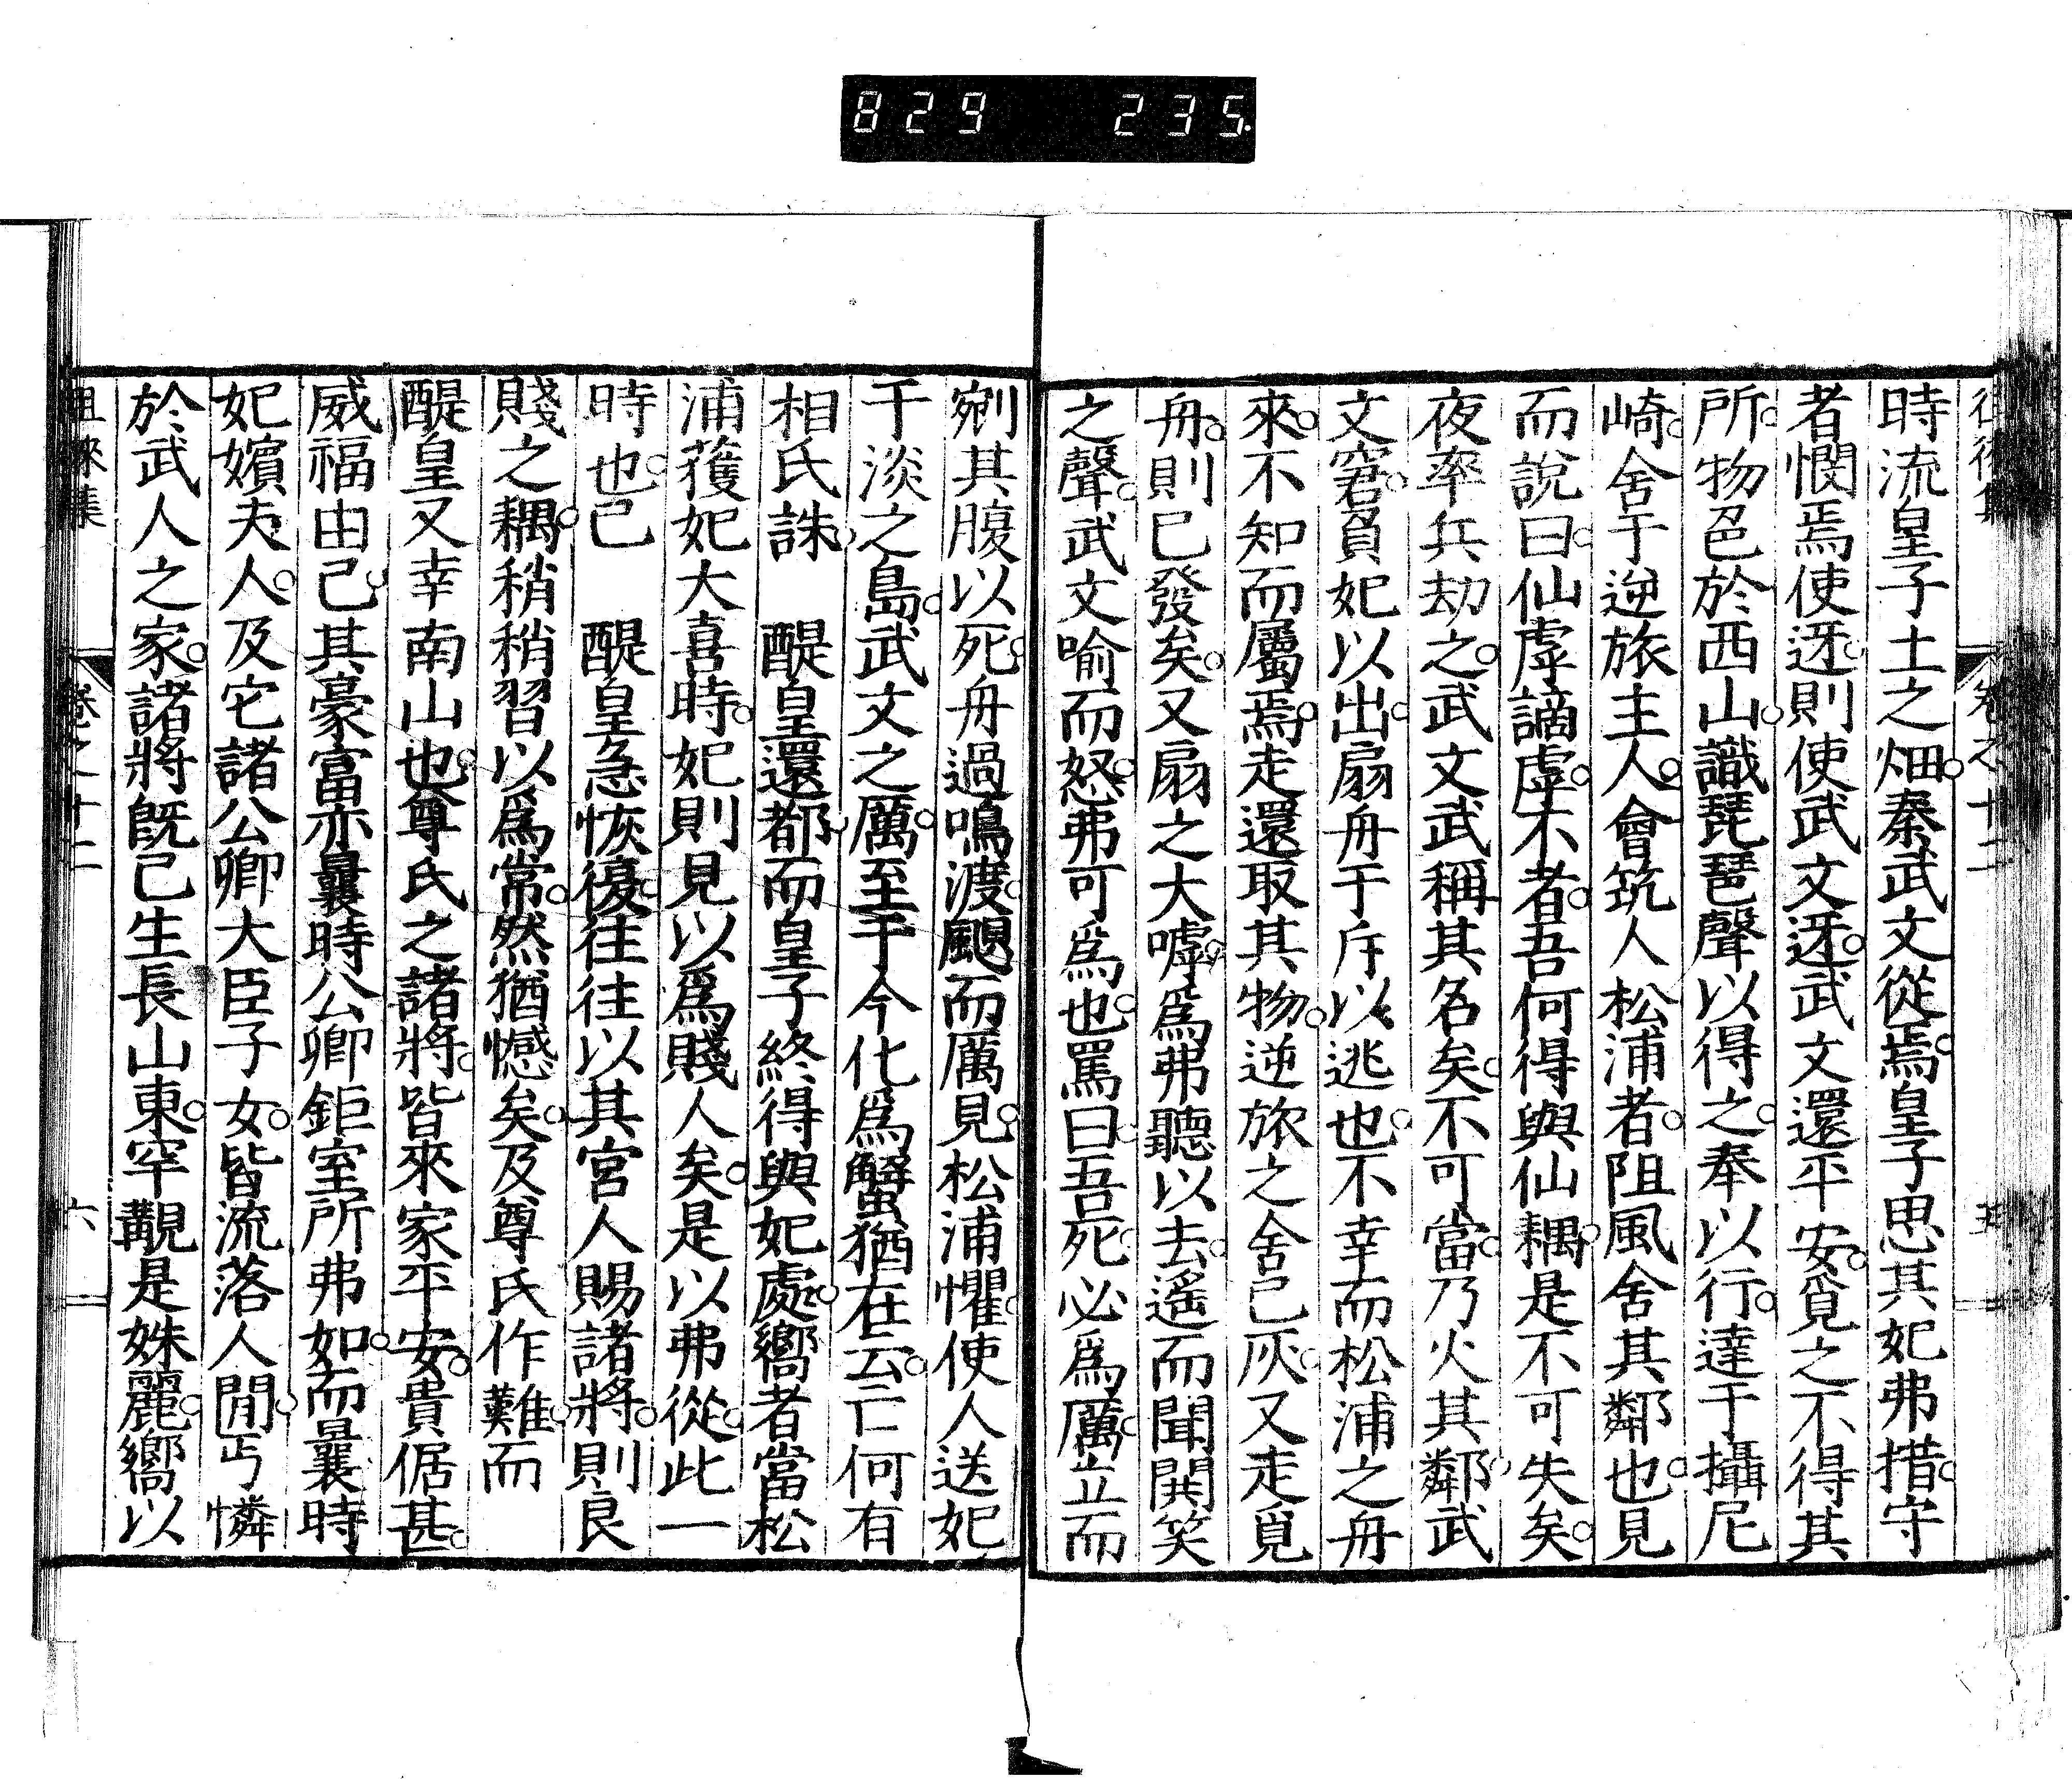 829 235
時流皇子土之畑。秦武文從焉。皇子思其妃弗措。守
者憫焉使迓。則使武文迓。武文還平安。覓之不得其
所。物色於西山。識琵琶聲以得之。奉以行。達于攝尼
崎。舍于逆旅主人。會筑人松浦者。阻風舍其鄰也。見
而說曰。仙虖謫虖。不者。吾何得與仙耦。是不可失矣。
夜率兵劫之。武文武稱其名矣。不可當。乃火其鄰。武
文窘。負妃以出。扇舟于斥以逃也。不幸而松浦之舟
來。不知而屬焉。走還取其物。逆旅之舍已灰。又走覓
舟。則已發矣。又扇之大嘑。爲弗聽以去。遙而聞閧笑
之聲。武文喻而怒。弗可爲也。罵曰。吾死必爲厲。立而
剜其腹以死。舟過鳴渡。颶而厲見。松浦懼。使人送妃
于淡之島。武文之厲。至于今化爲蟹。猶在云。亡何有
相氏誅。 醍皇還都。而皇子終得與妃處。嚮者當松
浦獲妃大喜時。妃則見以爲賤人矣。是以弗從。此一
時也。已 醍皇急恢復。往往以其宮人賜諸將。則良
賤之耦。稍稍習以爲常。然猶憾矣。及尊氏作難。而
醍皇又幸南山也。尊氏之諸將。皆來家平安。貴倨甚。
威福由己。其豪富亦曩時公卿鉅室所弗如。而曩時
妃嬪夫人。及它諸公卿大臣子女。皆流落人閒。丐憐
於武人之家。諸將既已生長山東。罕覯是姝麗。嚮以
徂徠集 卷之十二 六
卷之十二 五